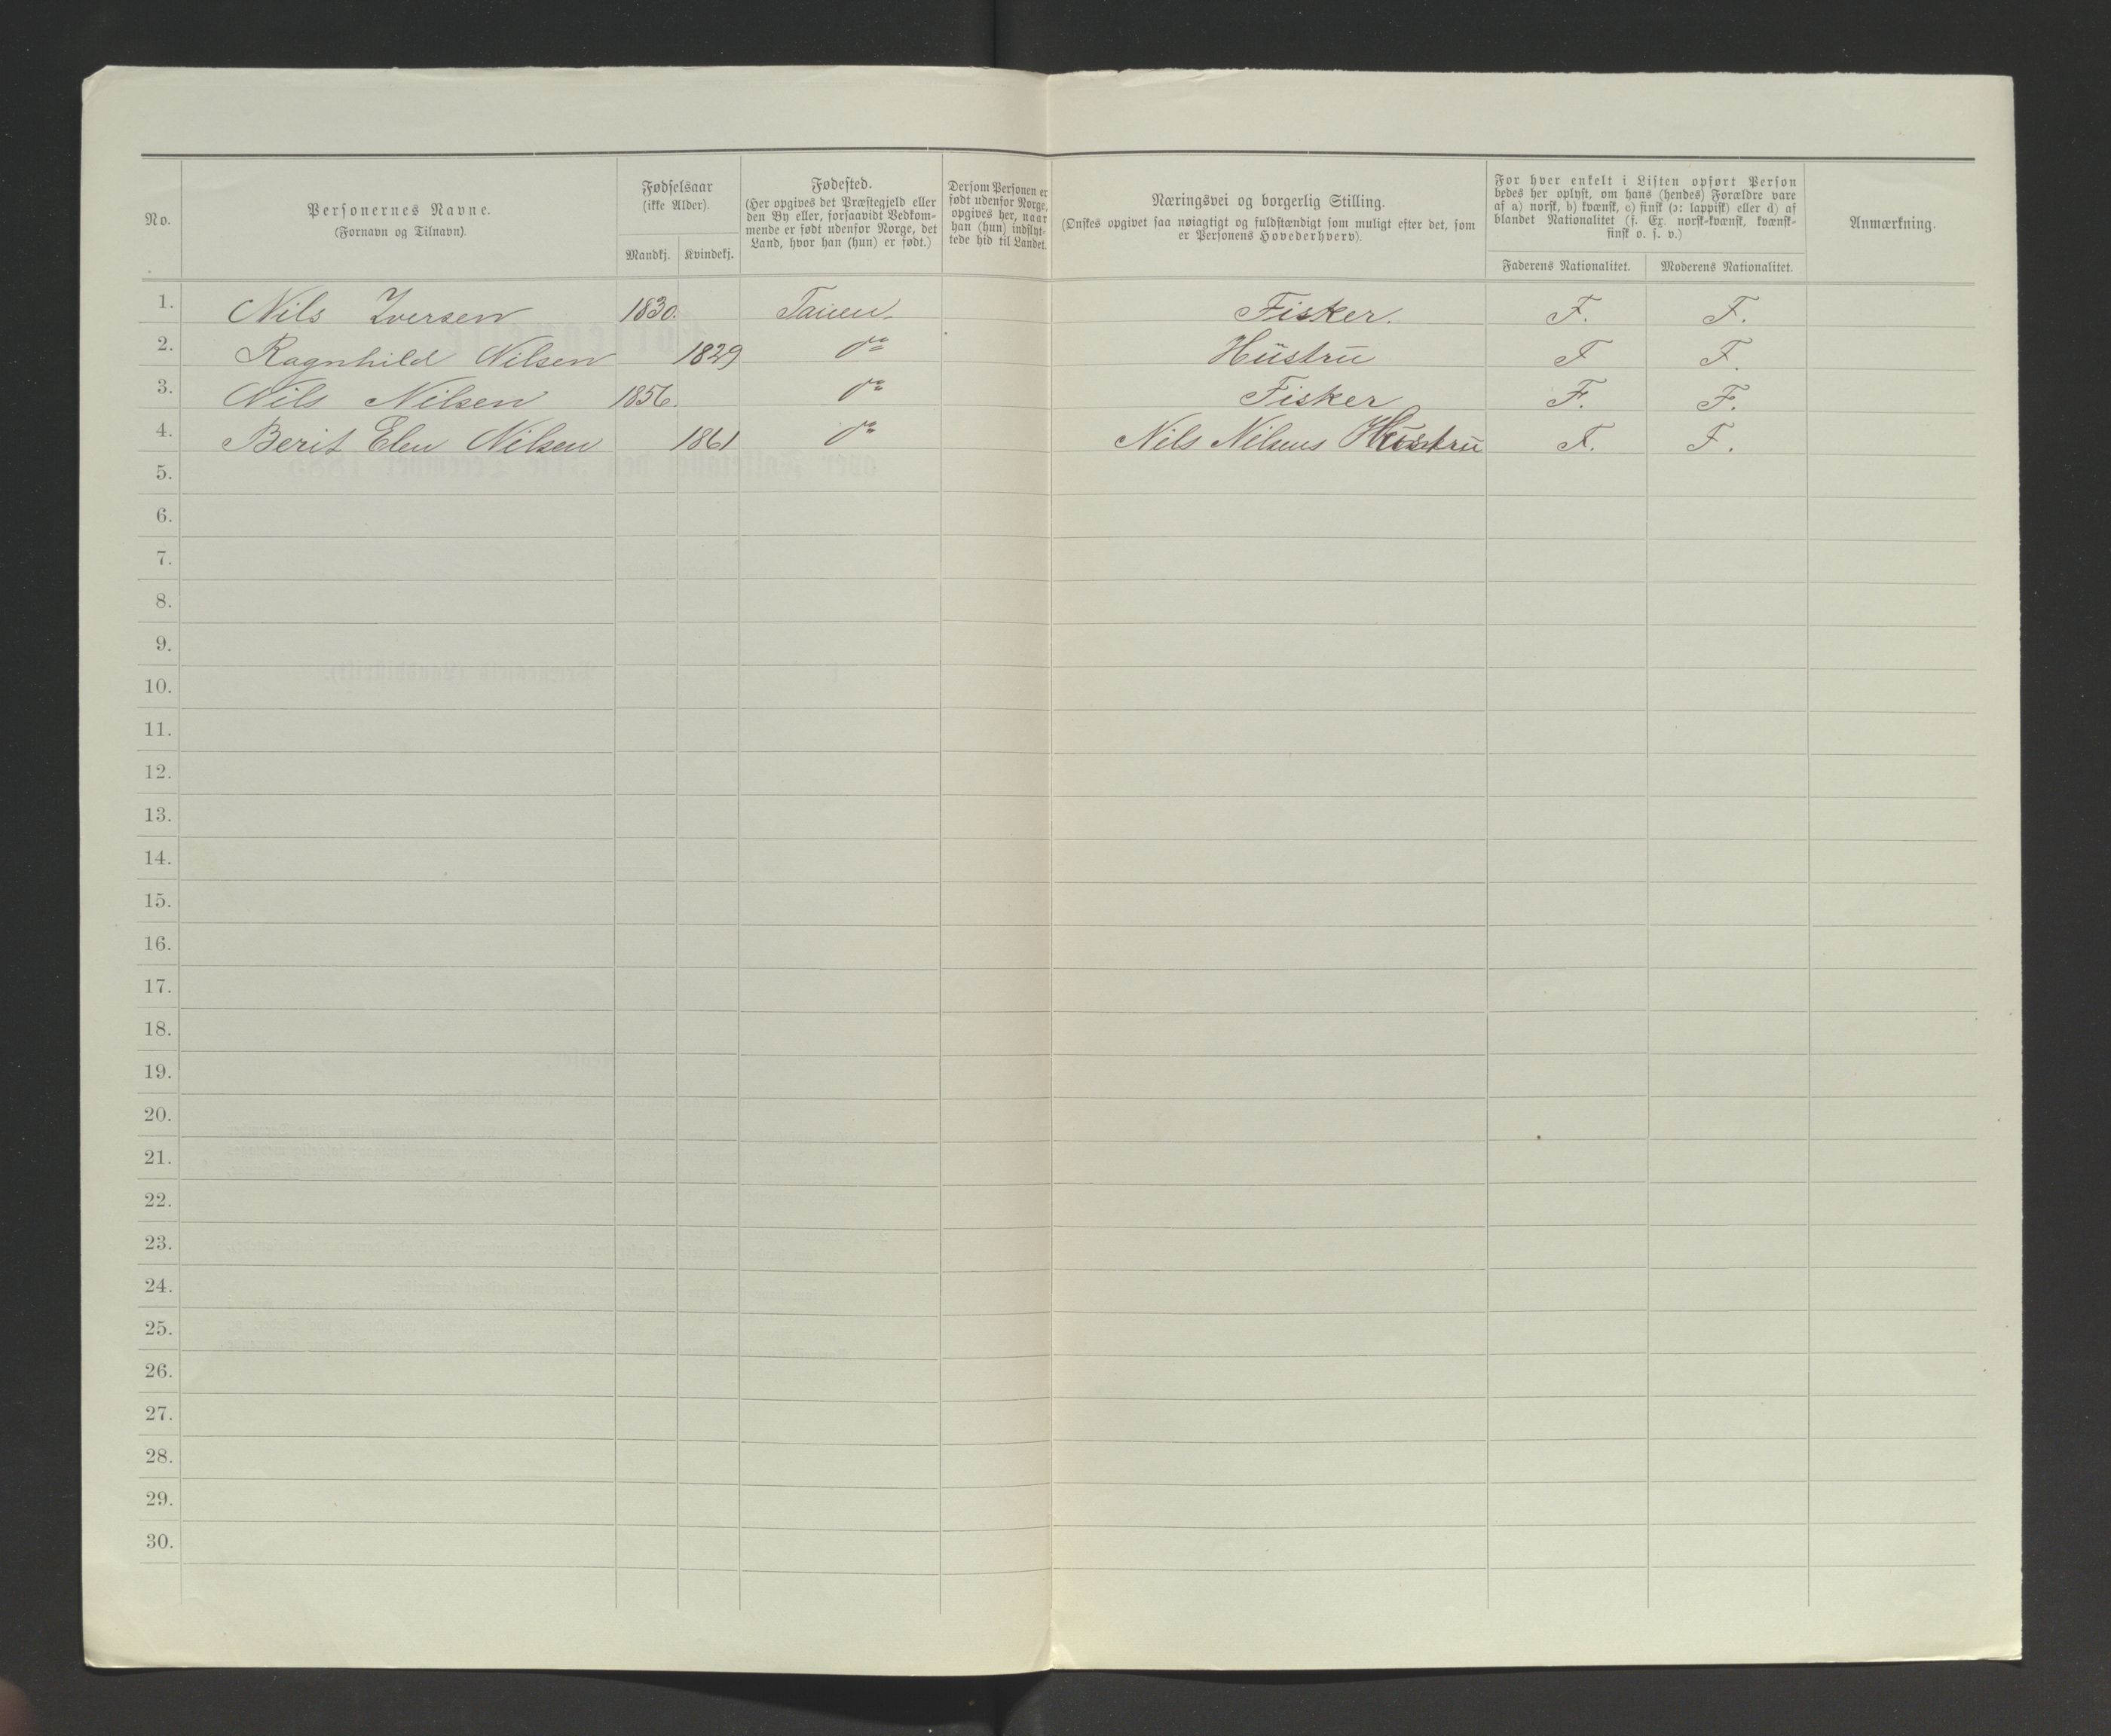 No.
Personernes Navne.
(Fornavn og Tilnavn).
Fødselsaar
(ikke Alder).
Mandkj.
Kvindekj.
Fødested.
(Her opgives det Præstegjeld eller
den By eller, forsaavidt Vedkom-
mende er født udenfor Norge, det
Land, hvor han (hun) er født.)
Dersom Personen er
født udenfor Norge,
opgives her, naar
han (hun) indflyt-
tede hid til Landet.
Næringsvei og borgerlig Stilling.
(Ønskes opgivet saa nøiagtigt og fuldstændigt som muligt efter det, som
er Personens Hovederhverv).
For hver enkelt i Listen opført Person
bedes her oplyst, om hans (hendes) Forældre vare
af a) norsk, b) kvænsk, c) finsk (ɔ: lappisk) eller d) af
blandet Nationalitet (f. Ex. norsk-kvænsk, kvænsk-
finsk o. s. v.)
Faderens Nationalitet.
Moderens Nationalitet.
Anmærkning.
1. Nils Iversen 1830. Tanen. Fisker. F. F.
2. Ragnhild Nilsen 1829 do Hüstrü F F.
3. Nils Nilsen 1856. do Fisker F. F.
4. Berit Elen Nilsen 1861 do Nils Nilsens Hüstrü F. F.
5.
6.
7.
8.
9.
10.
11.
12.
13.
14.
15.
16.
17.
18.
19.
20.
21.
22.
23.
24.
25.
26.
27.
28.
29.
30.